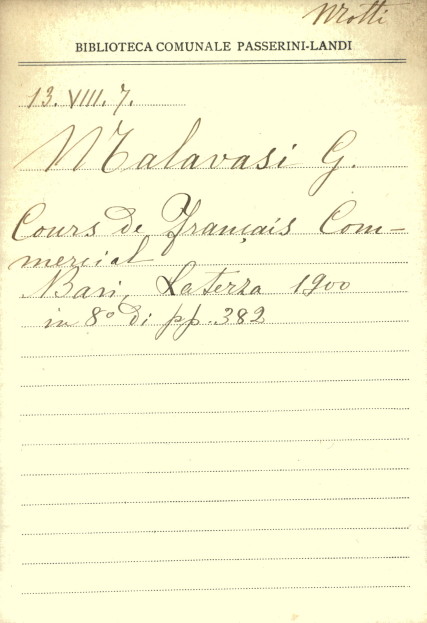 BIBLIOTECA COMUNALE PASSERINI-LANDI
13. VIII. 7.
Malavasi G.
Cours de Français Com-
mercial
Bari, Laterza 1900
in 8º di pp. 382